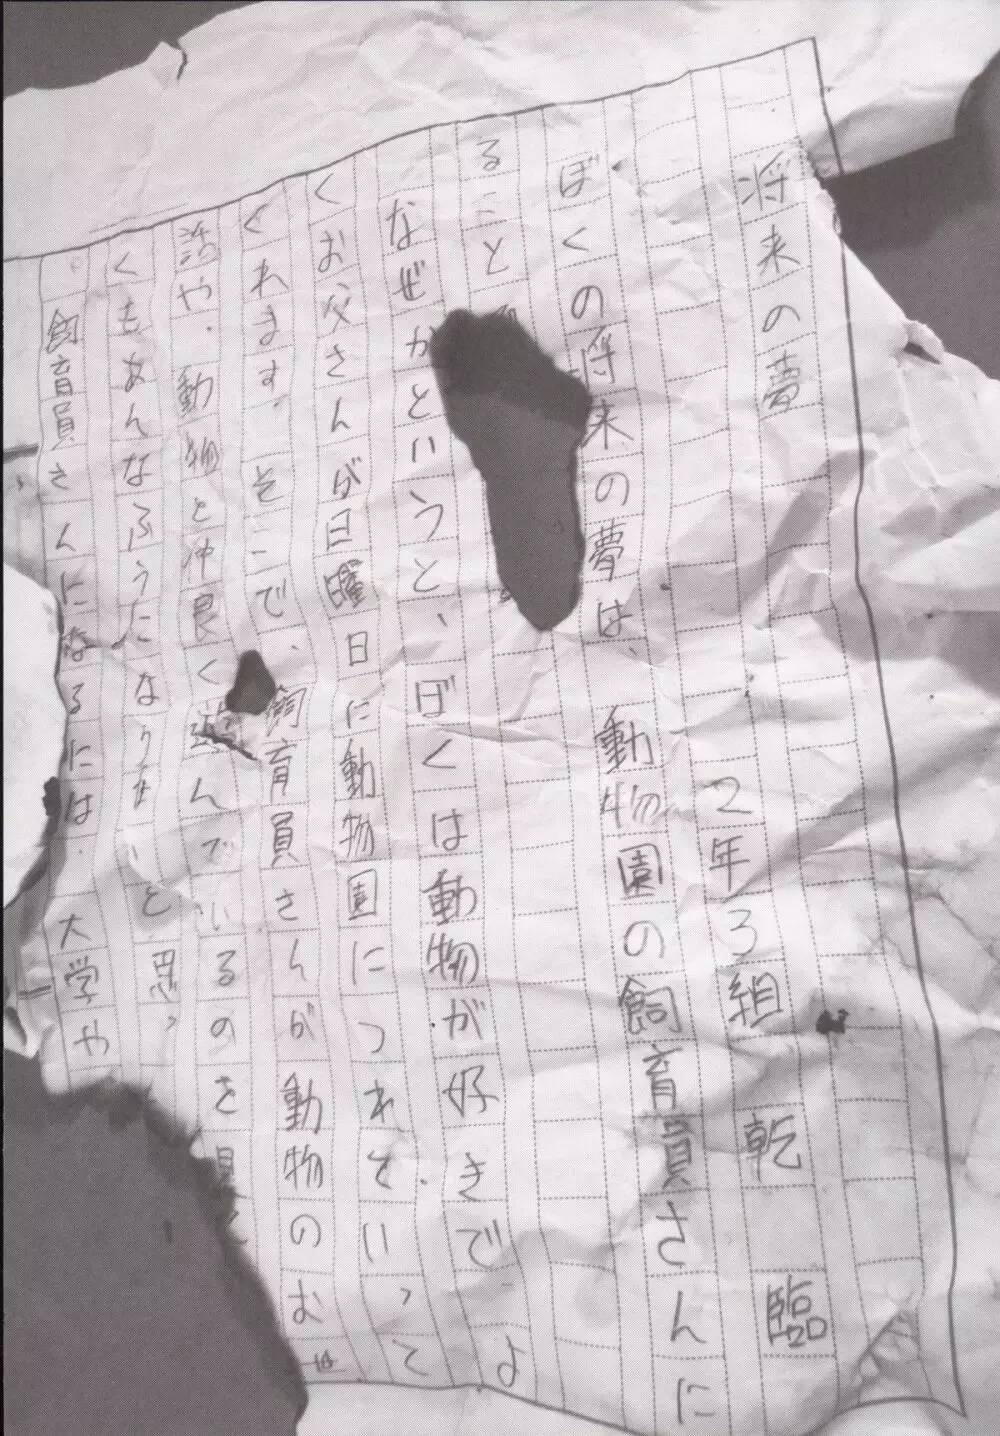 将来の夢
2年3組 乾 臨
ぼくの将来の夢は、動物園の飼育員さんに
ること
なぜかというと、ぼくは動物が好きで、よ
くお父さんが日曜日に動物園につれていって
くれます。そこで、飼育員さんが動物のお世
話や、動物と仲良く遊んでいるのを見て
くもあんなふうになりたいと思っ
飼育員さんになるには、大学や